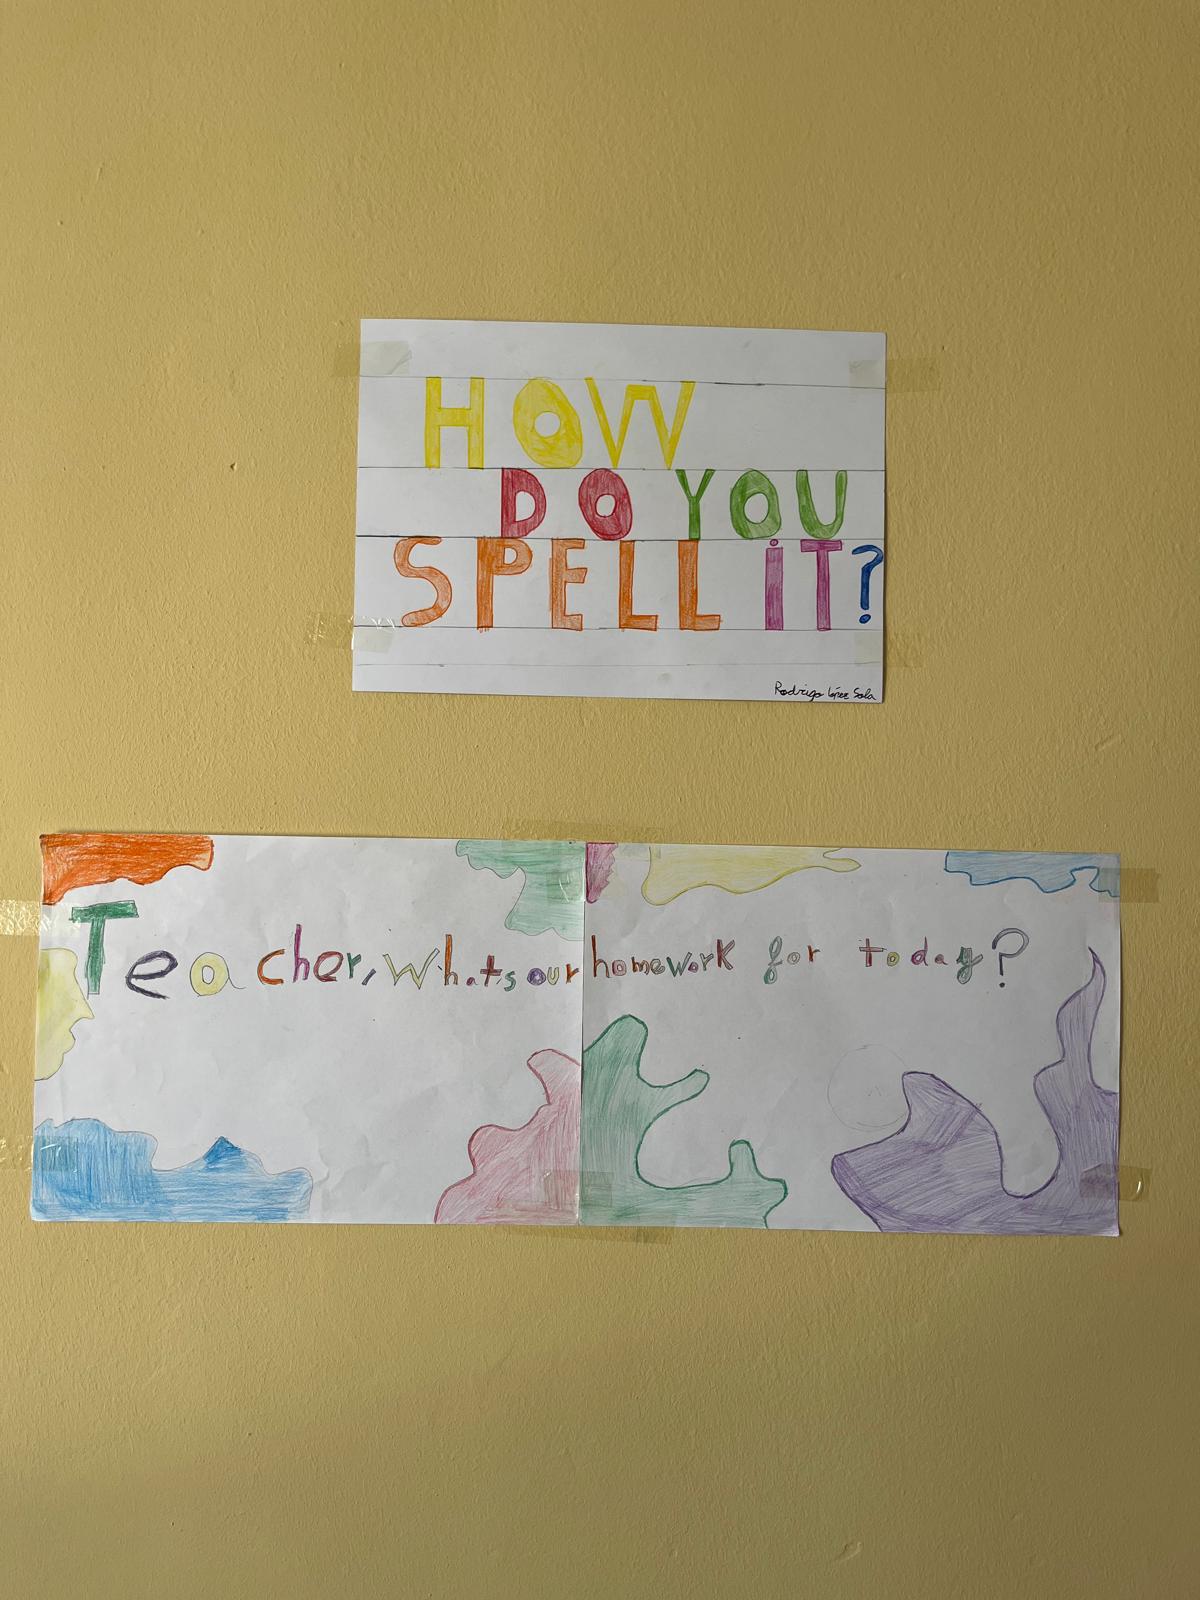 HOW
DO YOU
SPELL iT?
Rodrigo López Sola
Teacher, Whats our homework for today?